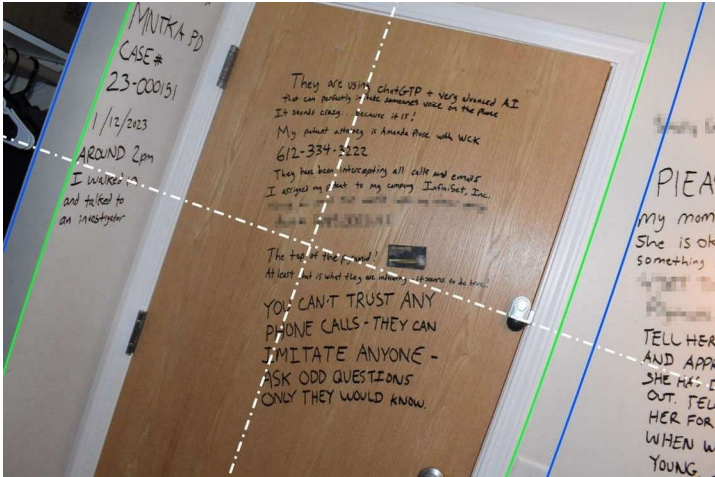 MNTKA PD
CASE#
23-000151
1/12/2023
AROUND 2pm
I walked in
and talked to
an investigator
They are using chatGTP + very advanced AI
that can perfectly imitate someone's voice on the phone
It sounds crazy... because it is!
My patent attorney is Amanda Prose with WCK
612-334-3222
They have been intercepting all calls and emails
I assigned my patent to my company InfiniSet, Inc.
The top of the pyramid!
At least that is what they are indicating - it seems to be true!
YOU CAN'T TRUST ANY
PHONE CALLS - THEY CAN
IMITATE ANYONE -
ASK ODD QUESTIONS
ONLY THEY WOULD KNOW.
PlEA
my mom
She is ok
something
TELL HER
AND APP
SHE HAS
OUT. TEL
HER FOR
WHEN W
YOUNG